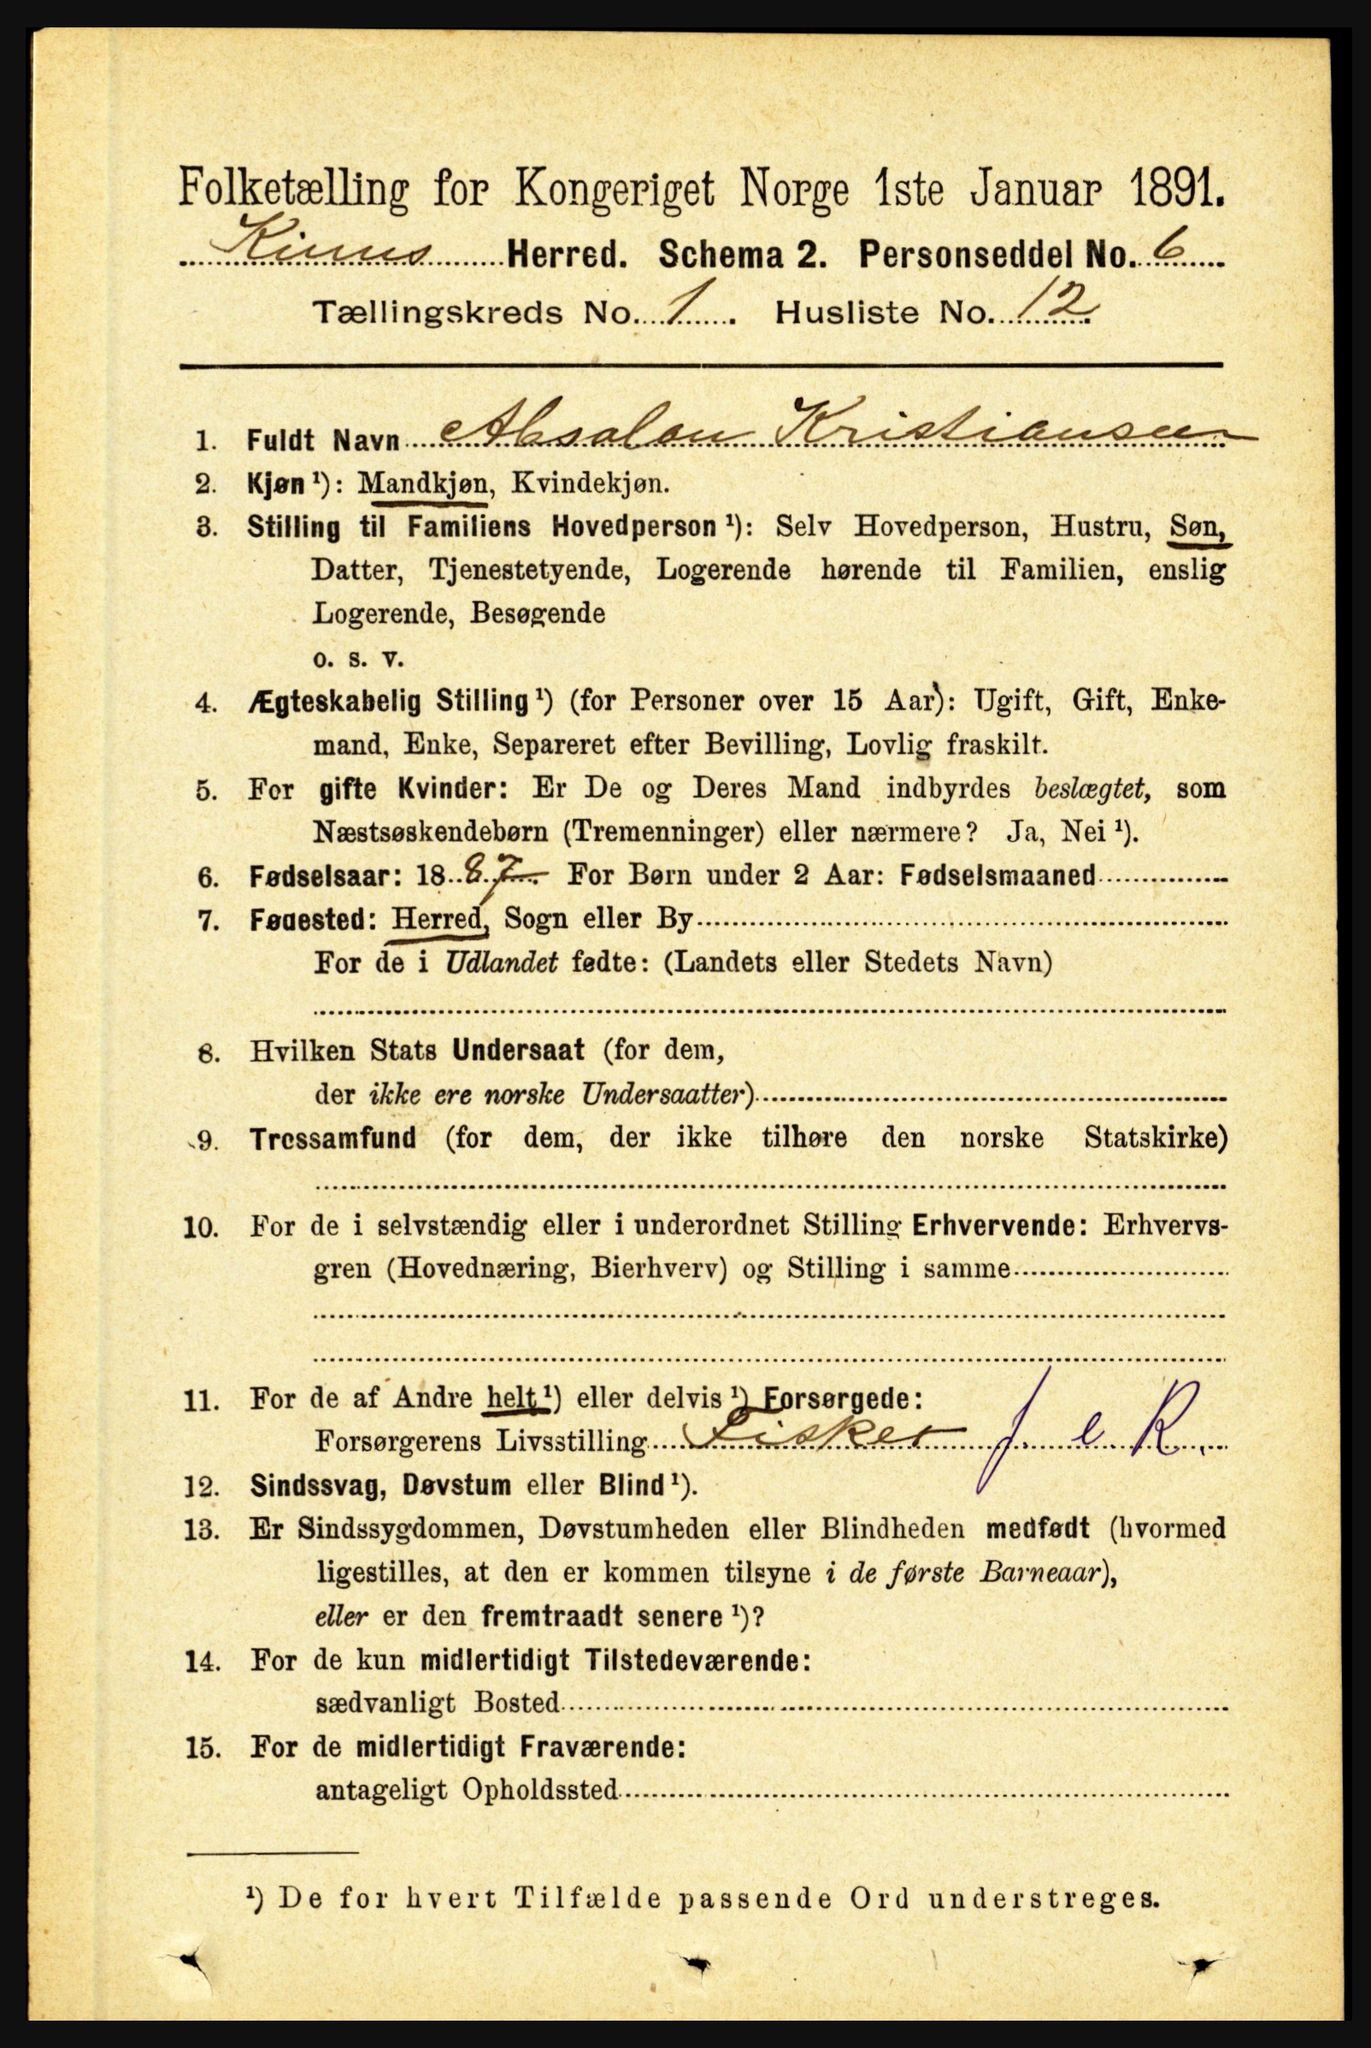 Folketælling for Kongeriget Norge 1ste Januar 1891.
Kinns Herred. Schema 2. Personseddel No. 6
Tællingskreds No. 1. Husliste No. 12.
1. Fuldt Navn Absalon Kristiansen
2. Kjøn ¹): Mandkjøn, Kvindekjøn.
3. Stilling til Familiens Hovedperson ¹): Selv Hovedperson, Hustru, Søn,
Datter, Tjenestetyende, Logerende hørende til Familien, enslig
Logerende, Besøgende
o. s. v.
4. Ægteskabelig Stilling ¹) (for Personer over 15 Aar): Ugift, Gift, Enke-
mand, Enke, Separeret efter Bevilling, Lovlig fraskilt.
5. For gifte Kvinder: Er De og Deres Mand indbyrdes beslægtet, som
Næstsøskendebørn (Tremenninger) eller nærmere? Ja, Nei ¹).
6. Fødselsaar: 1887. For Børn under 2 Aar: Fødselsmaaned
7. Fødested: Herred, Sogn eller By
For de i Udlandet fødte: (Landets eller Stedets Navn)
8. Hvilken Stats Undersaat (for dem,
der ikke ere norske Undersaatter)
9. Trossamfund (for dem, der ikke tilhøre den norske Statskirke)
10. For de i selvstændig eller i underordnet Stilling Erhvervende: Erhvervs-
gren (Hovednæring, Bierhverv) og Stilling i samme
11. For de af Andre helt ¹) eller delvis ¹) Forsørgede:
Forsørgerens Livsstilling Fisker f. e R.
12. Sindssvag, Døvstum eller Blind ¹).
13. Er Sindssygdommen, Døvstumheden eller Blindheden medfødt (hvormed
ligestilles, at den er kommen tilsyne i de første Barneaar),
eller er den fremtraadt senere ¹)?
14. For de kun midlertidigt Tilstedeværende:
sædvanligt Bosted
15. For de midlertidigt Fraværende:
antageligt Opholdssted
¹) De for hvert Tilfælde passende Ord understreges.